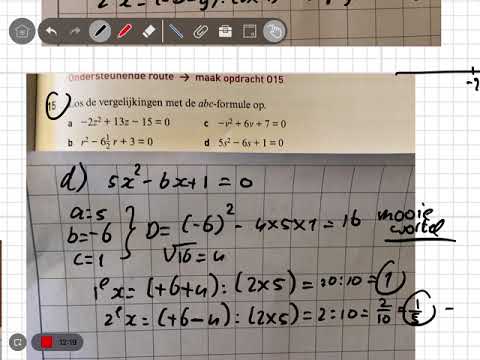 Ondersteunende route → maak opdracht O15
15 Los de vergelijkingen met de abc-formule op.
a −2z² + 13z − 15 = 0 c −v² + 6v + 7 = 0
b r² − 6½ r + 3 = 0 d 5s² − 6s + 1 = 0
d) 5x² − 6x + 1 = 0
a = 5
b = −6 } D = (−6)² − 4×5×1 = 16 mooie wortel
c = 1 √16 = 4
1e x = (+6+4) : (2×5) = 10 : 10 = 1
2e x = (+6−4) : (2×5) = 2 : 10 = 2/10 = 1/5 −
12:19